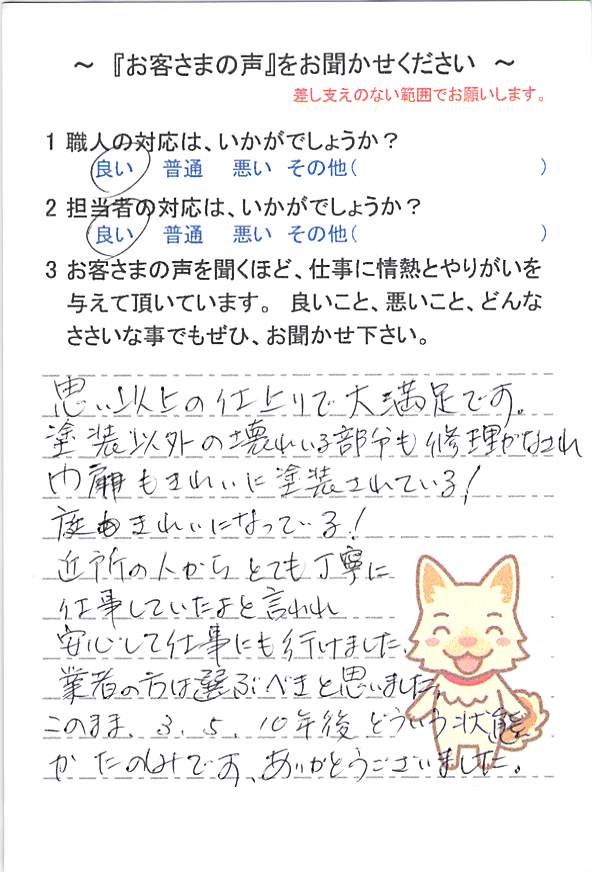 ～ 『お客さまの声』をお聞かせください ～
差し支えのない範囲でお願いします。
1 職人の対応は、いかがでしょうか？
良い 普通 悪い その他( )
2 担当者の対応は、いかがでしょうか？
良い 普通 悪い その他( )
3 お客さまの声を聞くほど、仕事に情熱とやりがいを
与えて頂いています。 良いこと、悪いこと、どんな
ささいな事でもぜひ、お聞かせ下さい。
思い以上の仕上りで大満足です。
塗装以外の壊れいる部分も修理がなされ
もきれいに塗装されている!
庭もきれいになっている!
近所の人からとても丁寧に
仕事していたよと言われ
安心して仕事にも行けました。
業者の方は選ぶべきと思いました。
このまま、3、5、10年後どういう状態
かたのしみです、ありがとうございました。